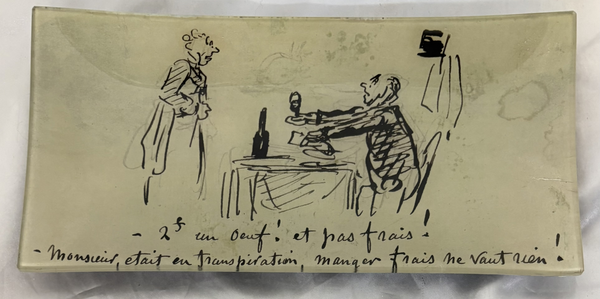 - 2f un oeuf! et pas frais!
- Monsieur, etait en transpiration, manger frais ne vaut rien!